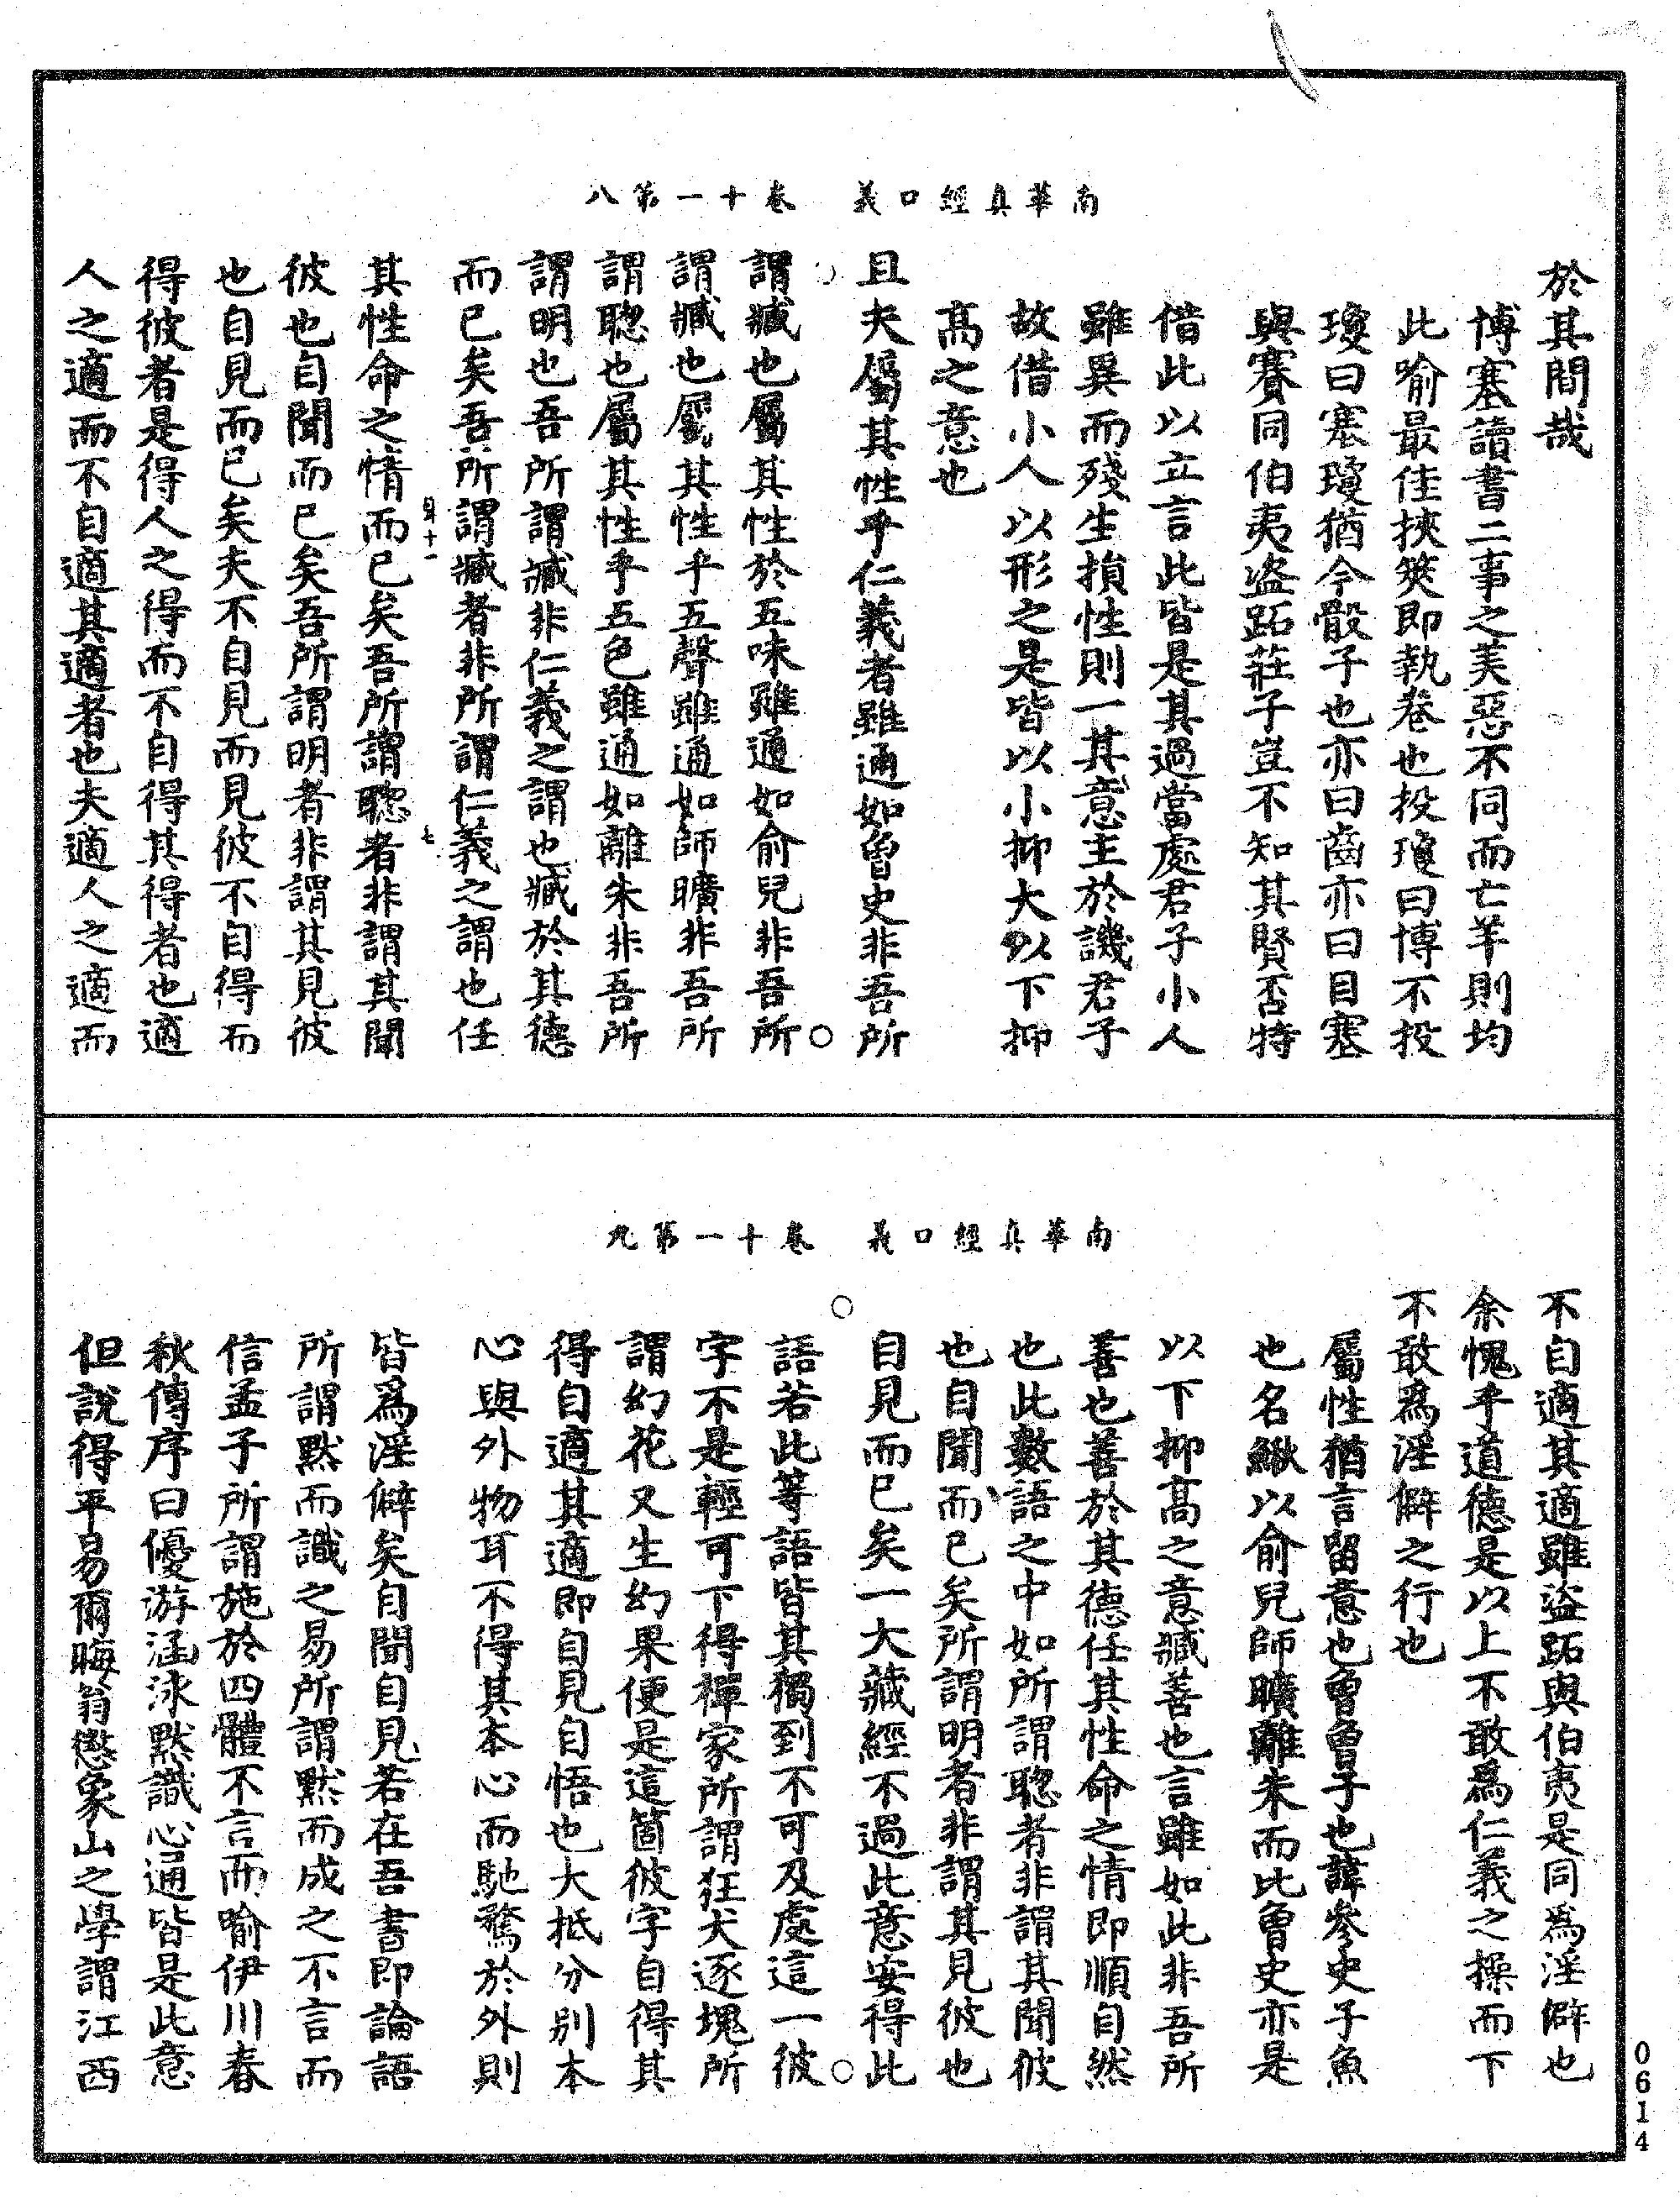 南華真經口義　卷十一第八
於其間哉
博塞讀書二事之美惡不同而亡羊則均
此喻最佳挾筴即執卷也投瓊曰博不投
瓊曰塞瓊猶今骰子也亦曰齒亦曰目塞
與賽同伯夷盜跖莊子豈不知其賢否特
借此以立言此皆是其過當處君子小人
雖異而殘生損性則一其意主於譏君子
故借小人以形之是皆以小抑大以下抑
高之意也
且夫屬其性乎仁義者雖通如曾史非吾所
謂臧也屬其性於五味雖通如俞兒非吾所
謂臧也屬其性乎五聲雖通如師曠非吾所
謂聰也屬其性乎五色雖通如離朱非吾所
謂明也吾所謂臧非仁義之謂也臧於其德
而已矣吾所謂臧者非所謂仁義之謂也任
其性命之情而已矣吾所謂聰者非謂其聞
彼也自聞而已矣吾所謂明者非謂其見彼
也自見而已矣夫不自見而見彼不自得而
得彼者是得人之得而不自得其得者也適
人之適而不自適其適者也夫適人之適而
南華真經口義　卷十一第九
不自適其適雖盜跖與伯夷是同為淫僻也
余愧乎道德是以上不敢為仁義之操而下
不敢為淫僻之行也
屬性猶言留意也曾曾子也諱參史子魚
也名鰍以俞兒師曠離朱而比曾史亦是
以下抑高之意臧善也言雖如此非吾所
善也善於其德任其性命之情即順自然
也此數語之中如所謂聰者非謂其聞彼
也自聞而已矣所謂明者非謂其見彼也
自見而已矣一大藏經不過此意安得此
語若此等語皆其獨到不可及處這一彼
字不是輕可下得禪家所謂狂犬逐塊所
謂幻花又生幻果便是這箇彼字自得其
得自適其適即自見自悟也大抵分別本
心與外物耳不得其本心而馳騖於外則
皆為淫僻矣自聞自見若在吾書即論語
所謂默而識之易所謂默而成之不言而
信孟子所謂施於四體不言而喻伊川春
秋傳序曰優游涵泳默識心通皆是此意
但說得平易爾晦翁懲象山之學謂江西
0614